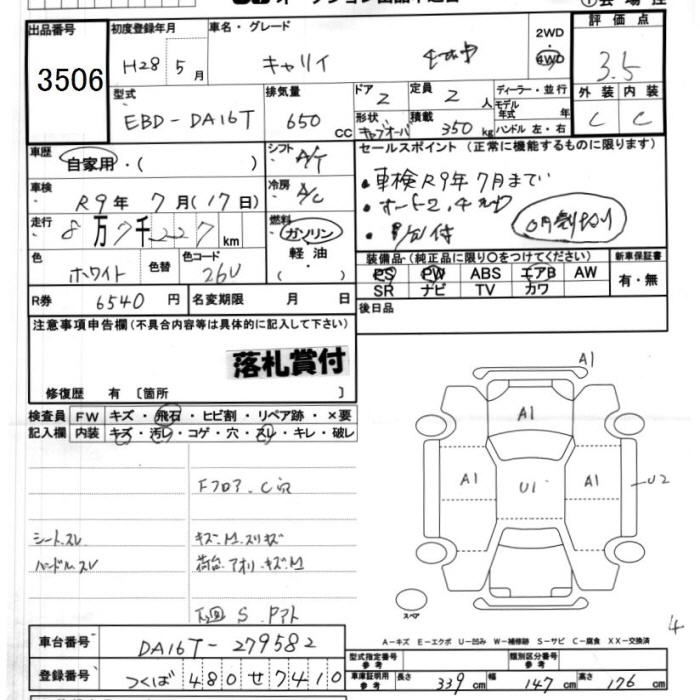 出品番号
3506
初度登録年月
H28年 5月
車名・グレード
キャリイ
2WD
4WD
評価点
3.5
外装 内装
C C
型式
EBD-DA16T
排気量
650 CC
ドア 2
定員 2人
形状 キャブオーバ
積載 350 kg
ディーラー・並行
モデル年式 年
ハンドル 左・右
車歴
自家用・( )
シフト A/T
冷房 A/C
燃料
ガソリン
軽油
・( )
車検
R9年 7月(17日)
走行
8万7千227km
色
ホワイト
色替
色コード
26U
R券 6540円
名変期限 月 日
セールスポイント (正常に機能するものに限ります)
・車検R9年7月まで
・オート2,4切
付
装備品 (純正品に限り○をつけてください)
PS PW ABS エアB AW
SR ナビ TV カワ
新車保証書
有・無
後日品
注意事項申告欄(不具合内容等は具体的に記入して下さい)
落札賞付
修復歴 有 〔箇所 〕
検査員記入欄
FW キズ・飛石・ヒビ割・リペア跡・×要
内装 キズ・汚レ・コゲ・穴・スレ・キレ・破レ
Fフロア.C穴
シートスレ
キズ.M.スリキズ
ハンドルスレ
荷台.アオリ.キズM
下回 S. Pアト
A1
A1
A1
U1
A1
U2
スペア
4
A-キズ E-エクボ U-凹み W-補修跡 S-サビ C-腐食 XX-交換済
車台番号
DA16T-279582
登録番号
つくば 480 せ 7410
型式指定番号 参考
類別区分番号 参考
車庫証明用 参考
長さ 339 cm
幅 147 cm
高さ 176 cm